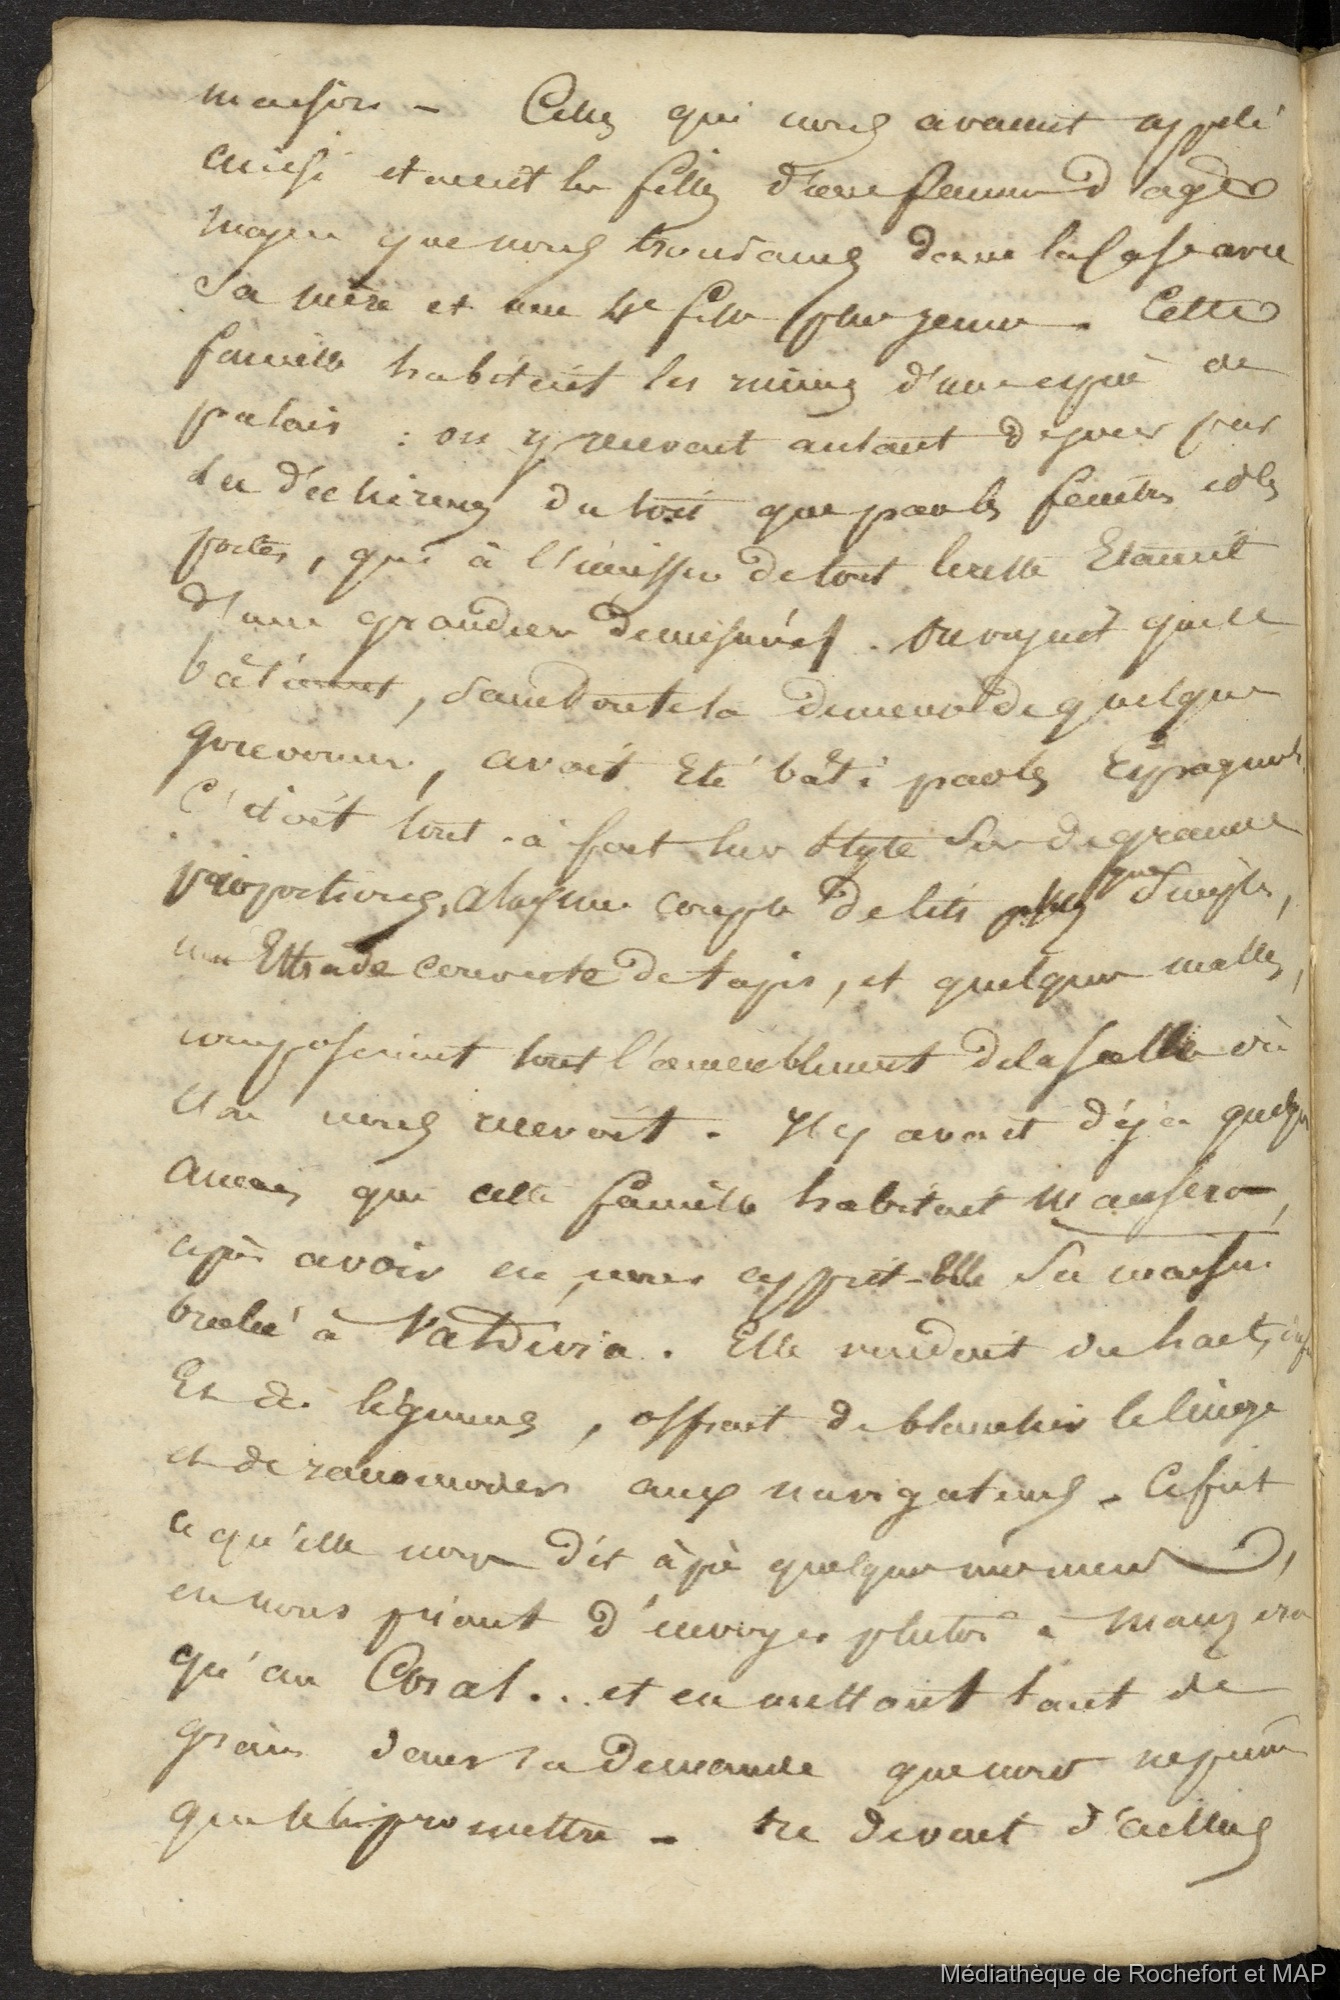 maison - Celles qui nous avaient appelé
ainsi etaient les filles d'une femme d'age
moyen que nous trouvames dans la case avec
sa mère et une 4e fille plus jeune. Cette
famille habitait les ruines d'une espèce de
palais : on y recevait autant de jour par
les déchirures du toit que par les fenêtres et les
portes, qui à l'unisson de tout le reste Etaient
d'une grandeur demesurées. On voyait que ce
bâtiment, sans doute la demeure de quelque
gouverneur, avait Eté bâti par les Espagnols.
C'etait tout-à-fait leur style sur de grandes
proportions, une couple de lits plus que simples,
une Estrade couverte de tapis, et quelques malles,
composaient tout l'ameublement de la salle où
l'on nous recevait. Il y avait déjà quelques
années que cette famille habitait Mansera,
après avoir eu, nous apprit-Elle sa maison
brulée à Valdivia. Elle vendait du lait,
Et des légumes, offrait de blanchir le linge
et de raccommoder aux navigateurs. Ce fut
ce qu'elle nous dit après quelques moments,
en nous priant d'envoyer plutôt à Manzera
qu'au Coral... et en mettant tant de
grâces dans sa demande que nous ne pumes
que le lui promettre - devait d'ailleurs
Médiathèque de Rochefort et MAP